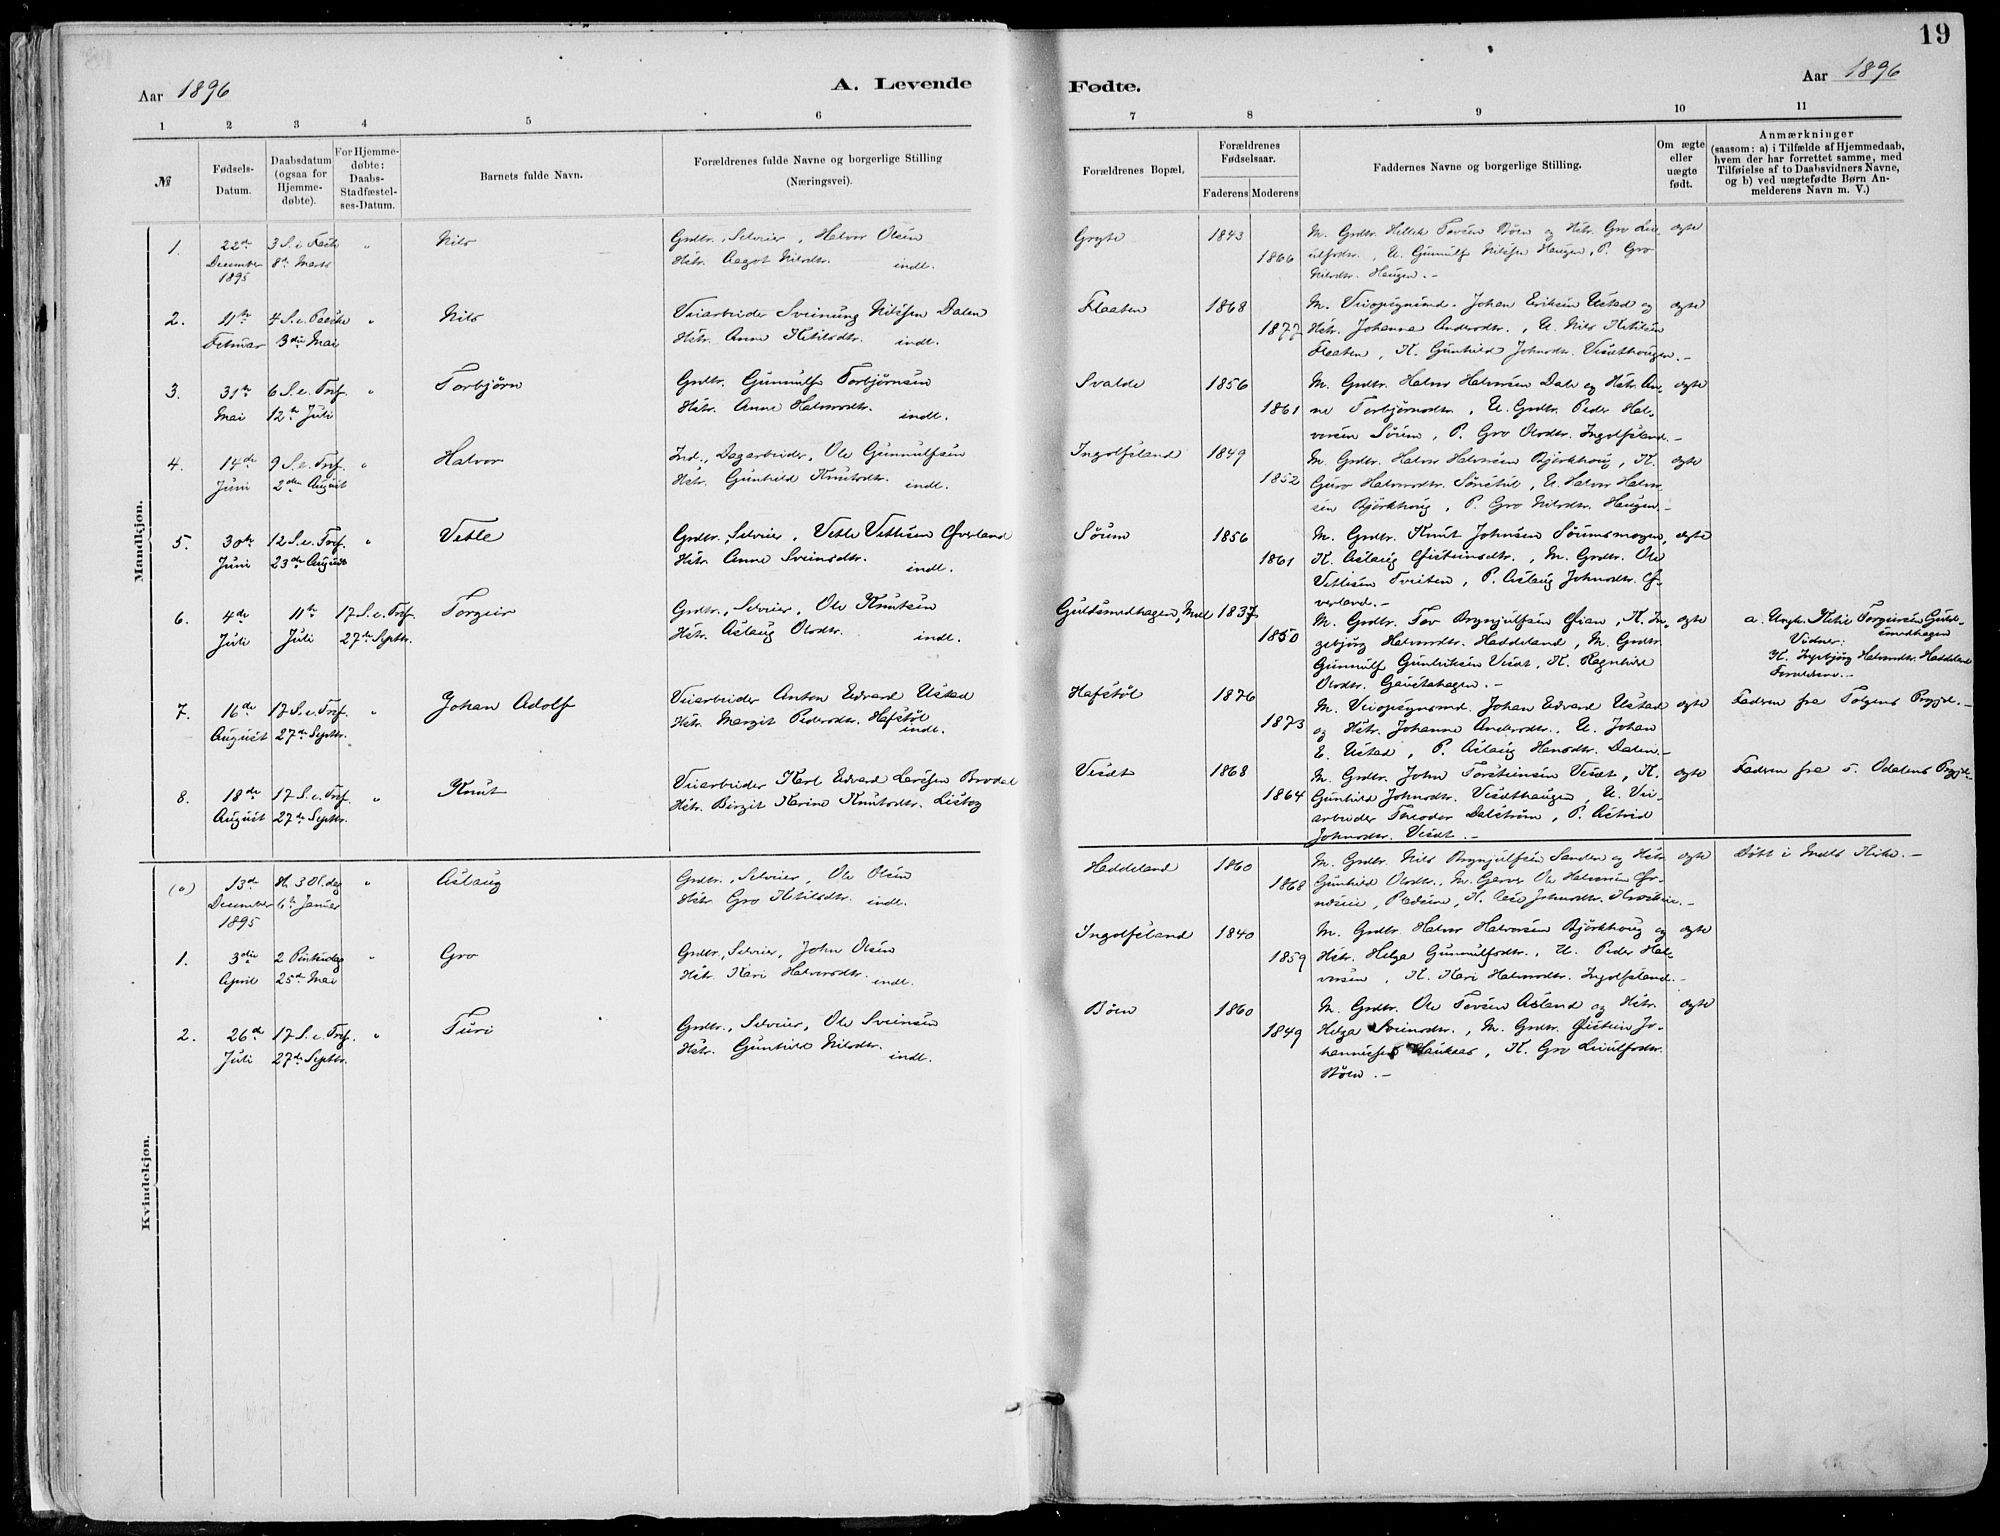 19
Aar 1896
A. Levende
Fødte.
Aar 1896
1 2 3 4 5 6 7 8 9 10 11
№
Fødsels-
Datum.
Daabsdatum
(ogsaa for
Hjemme-
døbte).
For Hjemme-
døbte:
Daabs-
Stadfæstel-
ses-Datum.
Barnets fulde Navn.
Forældrenes fulde Navne og borgerlige Stilling
(Næringsvei).
Forældrenes Bopæl.
Forældrenes
Fødselsaar.
Faderens Moderens
Faddernes Navne og borgerlige Stilling.
Om ægte
eller
uægte
født.
Anmærkninger
(saasom: a) i Tilfælde af Hjemmedaab,
hvem der har forrettet samme, med
Tilføielse af to Daabsvidners Navne,
og b) ved uægtefødte Børn An-
melderens Navn m. V.)
Mandkjøn.
1.
22de
December
1895
3 S. i Faste
8de Marts
"
Nils
Grdbr., Selveier, Halvor Olsen
Hstr. Aagot Nilsdtr. indl.
Gryte
1843
1866
M. Grdbr. Hellek Tovsen Bøen og Hstr. Gro Lei-
ulfsdtr., U. Gunnulf Nilssen Haugen, P. Gro
Nilsdtr. Haugen. -
ægte
2.
11te
Februar
4 S. e. Paaske
3die Mai
"
Nils
Veiarbeider Sveinung Nilssen Dalen
Hstr. Anne Ketilsdtr. indl.
Flaaten
1868
1877
M. Veiopsynsmd. Johan Eriksen Ustad og
Hstr. Johanna Andersdtr., U. Nils Ketilsen
Flaaten, K. Gunhild Johnsdtr. Vesethaugen. -
ægte
3.
31te
Mai
6 S. e. Tref.
12te Juli
"
Torbjørn
Grdbr. Gunnulf Torbjørnsen
Hstr. Anne Halvorsdtr. indl.
Svalde
1856
1861
M. Grdbr. Halvor Halvorsen Dale og Hstr. An-
ne Torbjørnsdtr., U. Grdbr. Peder Hal-
vorsen Sørum, P. Gro Olsdtr. Ingolfsland. -
ægte
4.
14de
Juni
9 S. e. Tref.
2den August
"
Halvor
Ind., Dagarbeider, Ole Gunnulfsen
Hstr. Gunhild Knutsdtr. indl.
Ingolfsland
1849
1852
M. Grdbr. Halvor Halvorsen Bjørkhaug, K.
Guro Halvorsdtr. Sønstul, U. Halvor Halvor-
sen Bjørkhaug, P. Gro Nilsdtr. Haugen. -
ægte
5.
30te
Juni
12 S. e. Tref.
23de August
"
Vetle
Grdbr., Selveier, Vetle Vetlesen Øverland
Hstr. Anne Sveinsdtr. indl.
Sørum
1856
1861
M. Grdbr. Knut Johnsen Sørumsmogen,
K. Aslaug Øisteinsdtr., M. Grdbr. Ole
Vetlesen Tveiten, P. Aslaug Johnsdtr. Ø-
verland. -
ægte
6.
4de
Juli
11te
Juli
17 S. e. Tref.
27de Septbr.
Torgeir
Grdbr., Selveier, Ole Knutsen
Hstr. Aslaug Olsdtr. indl.
Guldsmedhagen, Mæl
1837
1850
M. Grdbr. Tov Brynjulfsen Øian, K. In-
gebjørg Halvorsdtr. Haddeland, M. Grdbr.
Gunnulf Gunleiksen Vesæt, K. Ragnhild
Olsdtr. Gaustahagen. -
ægte
a. Ungk. Ketil Torgeirsen Guld-
smedhagen
Vidner:
K. Ingebjørg Halvorsdtr. Haddeland
Forældrene. -
7.
16de
August
17 S. e. Tref.
27de Septbr.
"
Johan Adolf
Veiarbeider Anton Edvard Ustad
Hstr. Margit Pedersdtr. Hafstøl
indl.
Hafstøl
1876
1873
M. Veiopsynsmd. Johan Edvard Ustad
og Hstr. Johanne Andersdtr. U. Johan
E. Ustad, P. Aslaug Hansdtr. Dalen. -
ægte
Faderen fra Tolgens Prgjd. -
8.
18de
August
17 S. e. Tref.
27de Septbr.
"
Knut
Veiarbeider Karl Edvard Larssen Brodal
Hstr. Birgit Karine Knutsdtr. Listog
Vesæt
1868
1864
M. Grdbr. John Torsteinsen Vesæt, K.
Gunhild Johnsdtr. Vesæthaugen, U. Vei-
arbeider Theodor Dalstrøm, P. Astrid
Johnsdtr. Vesæt. -
ægte
Faderen fra s. Odalens Prgjd. -
Kvindekjøn.
(o)
13de
December
1895
H. 3 K. dag
6te Januar
"
Aslaug
Grdbr., Selveier, Ole Olsen
Hstr. Gro Ketilsdtr. indl.
Haddeland
1860
1868
M. Grdbr. Nils Brynjulfsen Sanden og Hstr.
Gunhild Olsdtr., M. Garver Ole Halvorsen
, K. Aase Johnsdtr.
ægte
Døbt i Mæls Kirke. -
1.
3die
April
2 Pintsedag
25de Mai
"
Gro
Grdbr., Selveier, John Olsen
Hstr. Kari Halvorsdtr. indl.
Ingolfsland
1840
1859
M. Grdbr. Halvor Halvorsen Bjørkhaug og
Hstr. Helga Gunnulfsdtr., U. Peder Hal-
vorsen, K. Kari Halvorsdtr. Ingolfsland. -
ægte
2.
26de
Juli
17 S. e. Tref.
27de Septbr.
"
Turi
Grdbr., Selveier, Ole Sveinsen
Hstr. Gunhild Nilsdtr. indl.
Bøen
1860
1849
M. Grdbr. Ole Tovsen Aasland og Hstr.
Helga Sveinsdtr., M. Grdbr. Øistein Jo-
hannessen Haukaas, K. Gro Leiulfsdtr.
Bøen. -
ægte